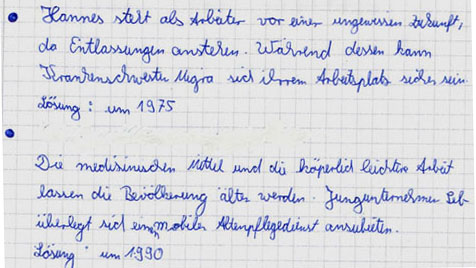 Hannes steht als Arbeiter vor einer ungewissen Zukunft,
da Entlassungen anstehen. Während dessen kann
Krankenschwester Migra sich ihrem Arbeitsplatz sicher sein.
Lösung: um 1975
Die medizinischen Mittel und die körperlich leichtere Arbeit
lassen die Bevölkerung älter werden. Jungunternehmer Seb
überlegt sich einen mobilen Altenpflegedienst anzubieten.
Lösung um 1990